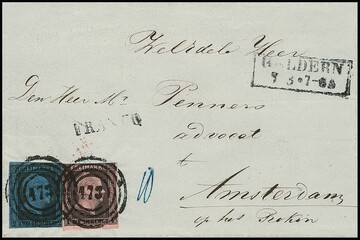 Weledele Heer
GELDERN
Den Heer Mr. Penners
FRANCO
advocaat
te
Amsterdam
op het Rokin
473 473
10